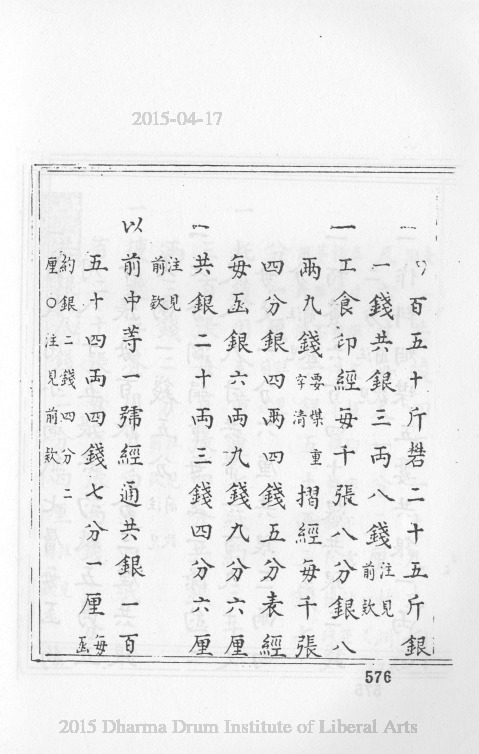 2015-04-17
百五十斤二十五斤銀
一錢共銀三両八錢注見前欵
一工食印經每千張八分銀八
兩九錢要煤重字清摺經每千張
四分銀四兩四錢五分表經
每凾銀六両九錢九分六厘
一共銀二十両三錢四分六厘
注見前欵
以前中等一號經通共銀一百
五十四両四錢七分一厘每凾
約銀二錢四分二
厘〇注見前欵
576
2015 Dharma Drum Institute of Liberal Arts